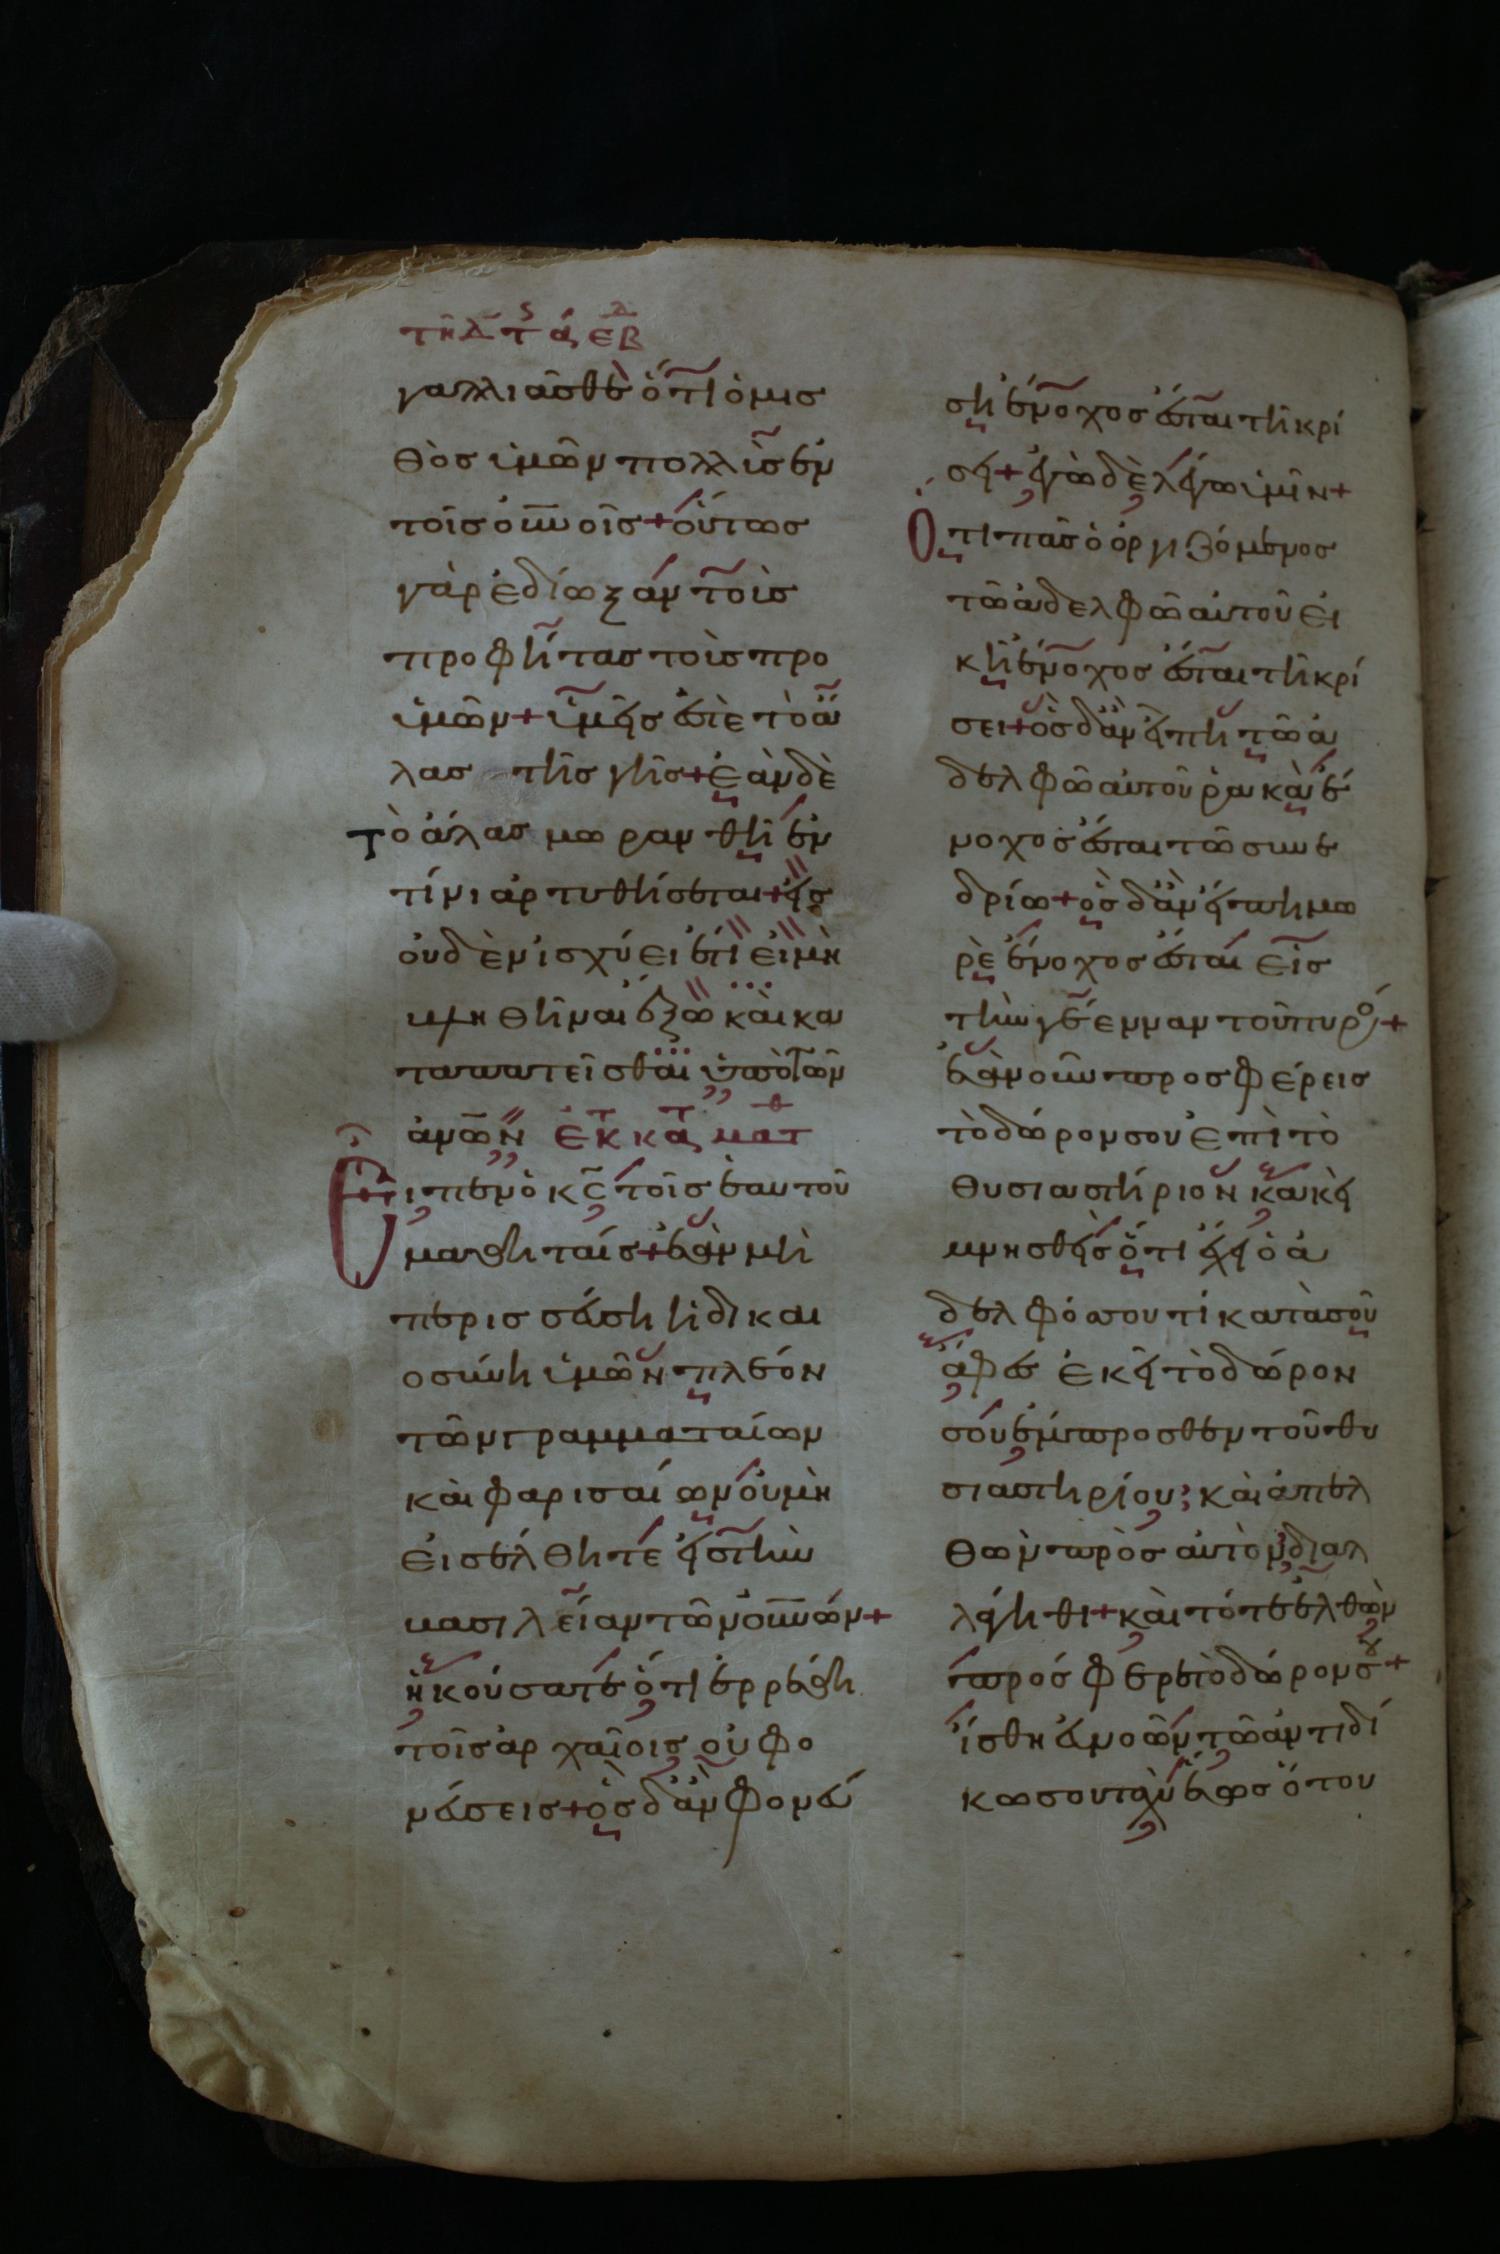 τῆ δ τ ς ἑβδ
γαλλιᾶσθε ὅτι ὁ μισ
θὸς ὑμῶν πολλὺς ἐν
τοῖς οὐνοῖς + οὕτως
γὰρ ἐδίωξαν τοὺς
προφήτας τοὺς προ
ὑμῶν + ὑμεῖς ἐστὲ τὸ ἅ
λας τῆς γῆς + ἐὰν δὲ
τὸ ἅλας μωρανθῆ ἐν
τίνι ἁρτυθήσεται + εἰς
οὐδὲν ἰσχύει ἔτι εἰ μὴ
βληθῆναι ἔξω καὶ κα
ταπατεῖσθαι ὑπὸ τῶν
ἀνῶν ἐκ τ κατ ματθ
Εἶπεν ὁ κς τοῖς ἑαυτοῦ
μαθηταῖς + ἐὰν μὴ
περισσεύση ἡ δικαι
οσύνη ὑμῶν πλεόν
τῶν γραμματαίων
καὶ φαρισαίων οὐ μὴ
εἰσέλθητε εἰς τὴν
βασιλείαν τῶν οὐνῶν +
ἠκούσατε ὅτι ἐρρέθη
τοῖς ἀρχαίοις οὐ φο
νεύσεις + ὃς δ' ἂν φονεύ
ση ἔνοχος ἔσται τῆ κρί
σει + ἐγὼ δὲ λέγω ὑμῖν +
Ὅτι πᾶς ὁ ὀργιζόμενος
τῶ ἀδελφῶ αὐτοῦ εἰ
κῆ ἔνοχος ἔσται τῆ κρί
σει + ὃς δ' ἂν εἴπη τῶ ἀ
δελφῶ αὐτοῦ ῥακὰ ἔ
νοχος ἔσται τῶ συνε
δρίω + ὃς δ' ἂν εἴπη μω
ρὲ ἔνοχος ἔσται εἰς
τὴν γέενναν τοῦ πυρός +
ἐὰν οὖν προσφέρεις
τὸ δώρον σου ἐπὶ τὸ
θυσιαστήριον κακεῖ
μνησθεὶς ὅτι ἔχει ὁ ἀ
δελφός σου τί κατὰ σοῦ
ἄφες ἐκεῖ τὸ δώρον
σου ἔμπροσθεν τοῦ θυ
σιαστηρίου; καὶ ἀπελ
θὼν πρὸς αὐτὸν διαλ
λάγηθι + καὶ τότε ἐλθὼν
πρόσφερε τὸ δώρον σου +
ἴσθη εὐνοῶν τῶ ἀντιδί
κω σου ταχὺ ἕως ὅτου